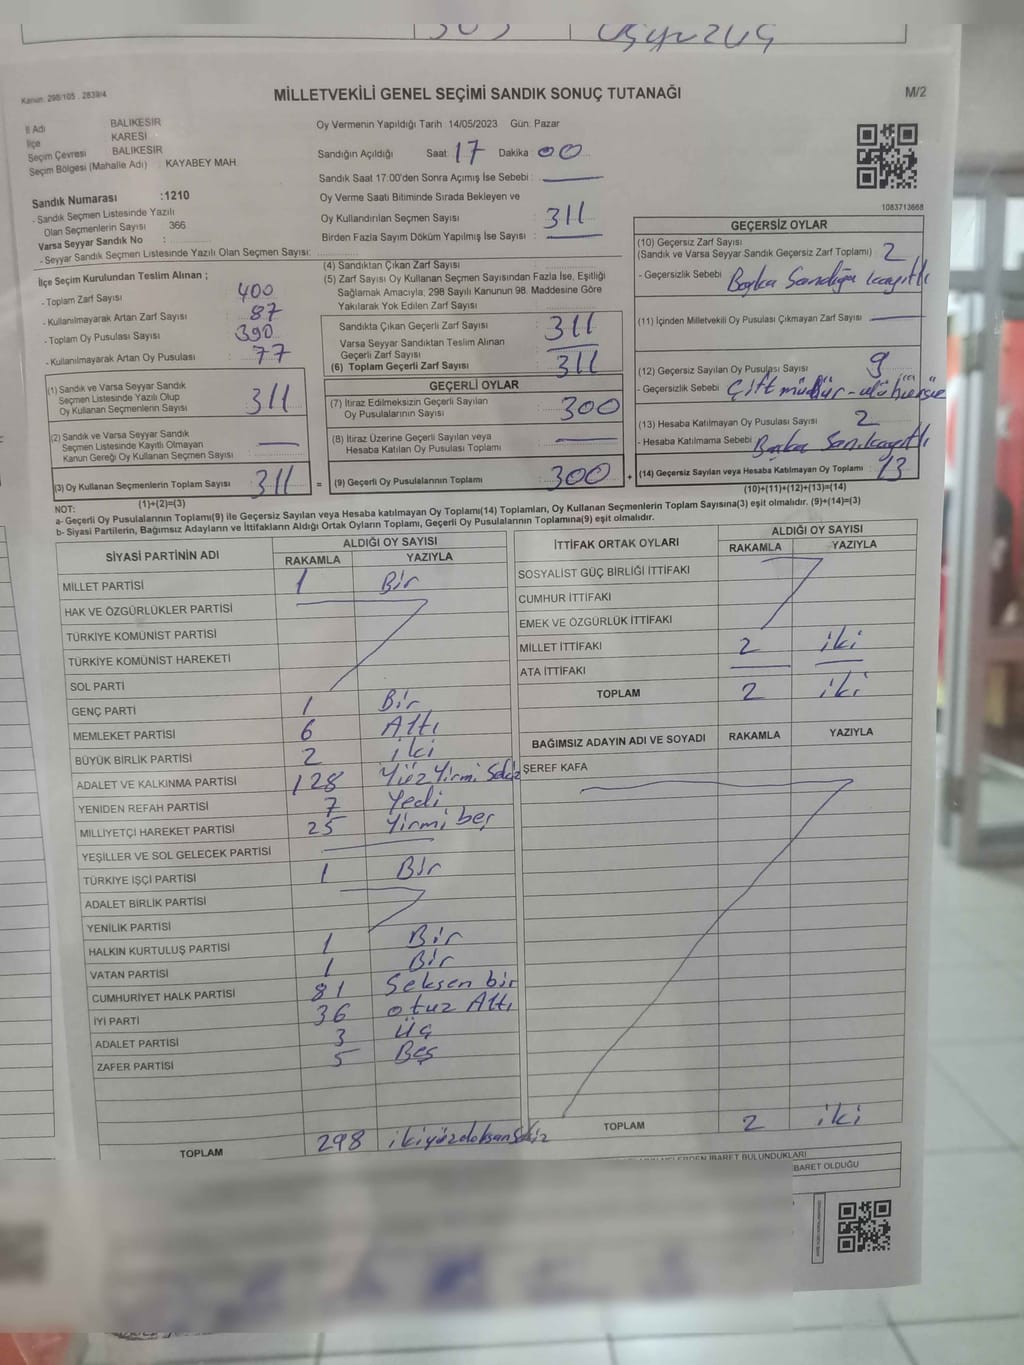 303 üçyüzüç
Kanun: 298/105 . 2839/4
MİLLETVEKİLİ GENEL SEÇİMİ SANDIK SONUÇ TUTANAĞI
M/2
İl Adı BALIKESİR
İlçe KARESİ
Seçim Çevresi BALIKESİR
Seçim Bölgesi (Mahalle Adı) : KAYABEY MAH.
Sandık Numarası :1210
- Sandık Seçmen Listesinde Yazılı
Olan Seçmenlerin Sayısı 366
Varsa Seyyar Sandık No :
- Seyyar Sandık Seçmen Listesinde Yazılı Olan Seçmen Sayısı:
Oy Vermenin Yapıldığı Tarih :14/05/2023 Gün: Pazar
Sandığın Açıldığı Saat: 17 Dakika 00
Sandık Saat 17:00'den Sonra Açımış İse Sebebi :
Oy Verme Saati Bitiminde Sırada Bekleyen ve
Oy Kullandırılan Seçmen Sayısı : 311
Birden Fazla Sayım Döküm Yapılmış İse Sayısı :
1083713668
İlçe Seçim Kurulundan Teslim Alınan ;
- Toplam Zarf Sayısı : 400
- Kullanılmayarak Artan Zarf Sayısı : 87
- Toplam Oy Pusulası Sayısı : 390
- Kullanılmayarak Artan Oy Pusulası : 77
(1) Sandık ve Varsa Seyyar Sandık
Seçmen Listesinde Yazılı Olup
Oy Kullanan Seçmenlerin Sayısı : 311
(2) Sandık ve Varsa Seyyar Sandık
Seçmen Listesinde Kayıtlı Olmayan
Kanun Gereği Oy Kullanan Seçmen Sayısı :
(3) Oy Kullanan Seçmenlerin Toplam Sayısı : 311
(1)+(2)=(3)
(4) Sandıktan Çıkan Zarf Sayısı :
(5) Zarf Sayısı Oy Kullanan Seçmen Sayısından Fazla İse, Eşitliği
Sağlamak Amacıyla, 298 Sayılı Kanunun 98. Maddesine Göre
Yakılarak Yok Edilen Zarf Sayısı :
Sandıkta Çıkan Geçerli Zarf Sayısı : 311
Varsa Seyyar Sandıktan Teslim Alınan
Geçerli Zarf Sayısı :
(6) Toplam Geçerli Zarf Sayısı : 311
GEÇERLİ OYLAR
(7) İtiraz Edilmeksizin Geçerli Sayılan
Oy Pusulalarının Sayısı : 300
(8) İtiraz Üzerine Geçerli Sayılan veya
Hesaba Katılan Oy Pusulası Toplamı :
= (9) Geçerli Oy Pusulalarının Toplamı : 300 +
GEÇERSİZ OYLAR
(10) Geçersiz Zarf Sayısı
(Sandık ve Varsa Seyyar Sandık Geçersiz Zarf Toplamı) : 2
- Geçersizlik Sebebi : Başka Sandığa kayıtlı
(11) İçinden Milletvekili Oy Pusulası Çıkmayan Zarf Sayısı :
(12) Geçersiz Sayılan Oy Pusulası Sayısı : 9
- Geçersizlik Sebebi : Çift mühür
(13) Hesaba Katılmayan Oy Pusulası Sayısı : 2
- Hesaba Katılmama Sebebi : Başka San. kayıtlı
(14) Geçersiz Sayılan veya Hesaba Katılmayan Oy Toplamı : 13
(10)+(11)+(12)+(13)=(14)
NOT:
a- Geçerli Oy Pusulalarının Toplamı(9) ile Geçersiz Sayılan veya Hesaba katılmayan Oy Toplamı(14) Toplamları, Oy Kullanan Seçmenlerin Toplam Sayısına(3) eşit olmalıdır. (9)+(14)=(3)
b- Siyasi Partilerin, Bağımsız Adayların ve İttifakların Aldığı Ortak Oyların Toplamı, Geçerli Oy Pusulalarının Toplamına(9) eşit olmalıdır.
SİYASİ PARTİNİN ADI ALDIĞI OY SAYISI
RAKAMLA YAZIYLA
MİLLET PARTİSİ 1 Bir
HAK VE ÖZGÜRLÜKLER PARTİSİ
TÜRKİYE KOMÜNİST PARTİSİ
TÜRKİYE KOMÜNİST HAREKETİ
SOL PARTİ
GENÇ PARTİ 1 Bir
MEMLEKET PARTİSİ 6 Altı
BÜYÜK BİRLİK PARTİSİ 2 iki
ADALET VE KALKINMA PARTİSİ 128 Yüz Yirmi Sekiz
YENİDEN REFAH PARTİSİ 7 Yedi
MİLLİYETÇİ HAREKET PARTİSİ 25 Yirmi beş
YEŞİLLER VE SOL GELECEK PARTİSİ
TÜRKİYE İŞÇİ PARTİSİ 1 Bir
ADALET BİRLİK PARTİSİ
YENİLİK PARTİSİ
HALKIN KURTULUŞ PARTİSİ 1 Bir
VATAN PARTİSİ 1 Bir
CUMHURİYET HALK PARTİSİ 81 Seksen bir
İYİ PARTİ 36 otuz Altı
ADALET PARTİSİ 3 Üç
ZAFER PARTİSİ 5 Beş
TOPLAM 298 ikiyüzdoksansekiz
İTTİFAK ORTAK OYLARI ALDIĞI OY SAYISI
RAKAMLA YAZIYLA
SOSYALİST GÜÇ BİRLİĞİ İTTİFAKI
CUMHUR İTTİFAKI
EMEK VE ÖZGÜRLÜK İTTİFAKI
MİLLET İTTİFAKI 2 iki
ATA İTTİFAKI
TOPLAM 2 iki
BAĞIMSIZ ADAYIN ADI VE SOYADI RAKAMLA YAZIYLA
ŞEREF KAFA
TOPLAM 2 iki
İBARET BULUNDUKLARI
BARET OLDUĞU